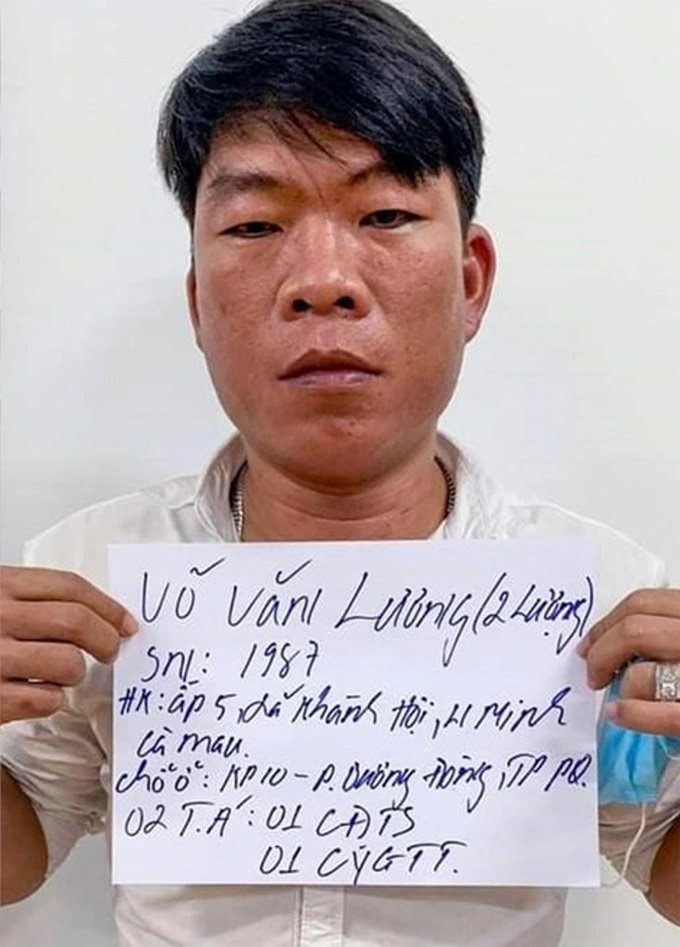 Võ Văn Lương (2 Lượng)
SN: 1987
HK: ấp 5, xã Khánh Hội, U Minh
Cà Mau.
Chỗ ở: KP10 - P. Dương Đông, TP PQ.
02 T.Á: 01 CĐTS
01 CYGTT.